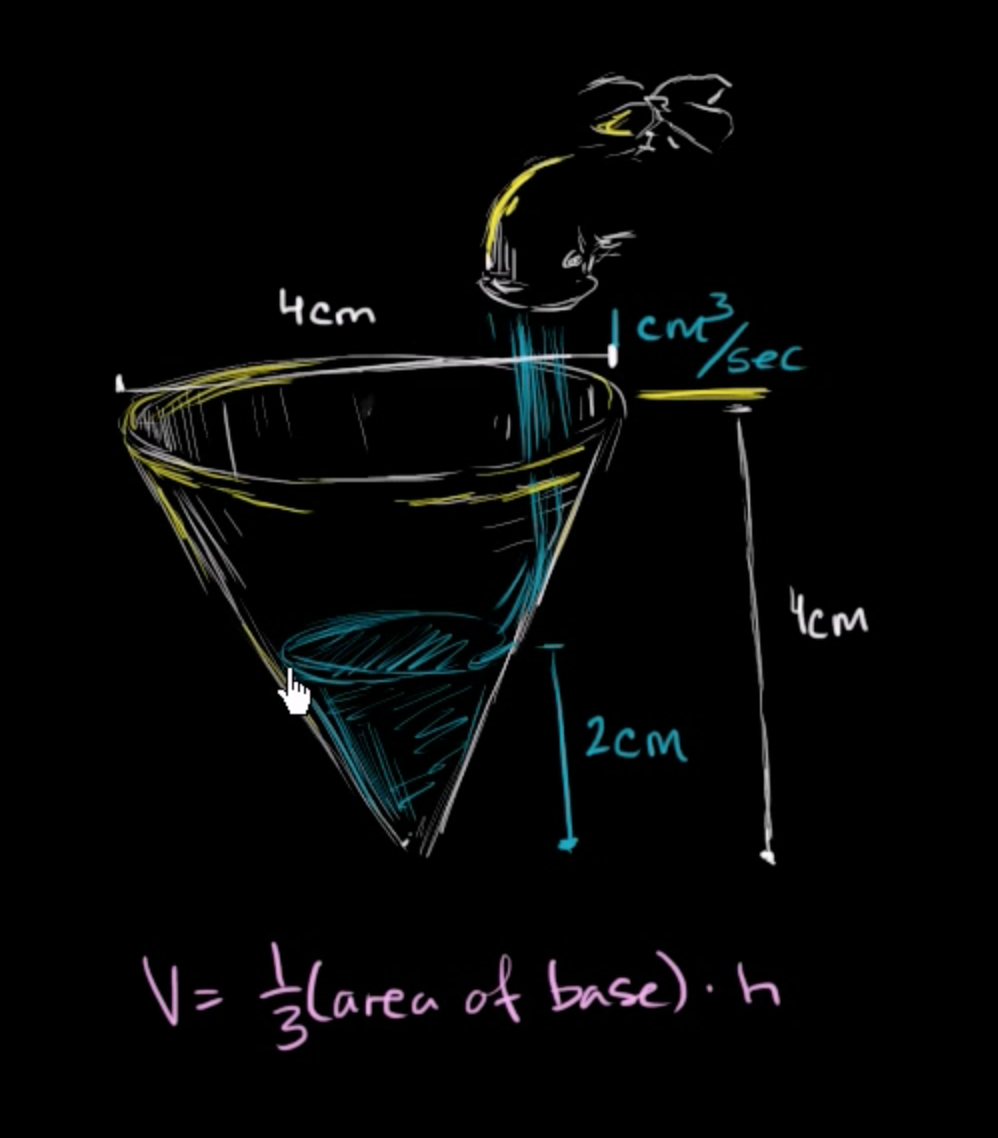 4cm
1 cm³/sec
4cm
2cm
V = 1/3 (area of base) · h